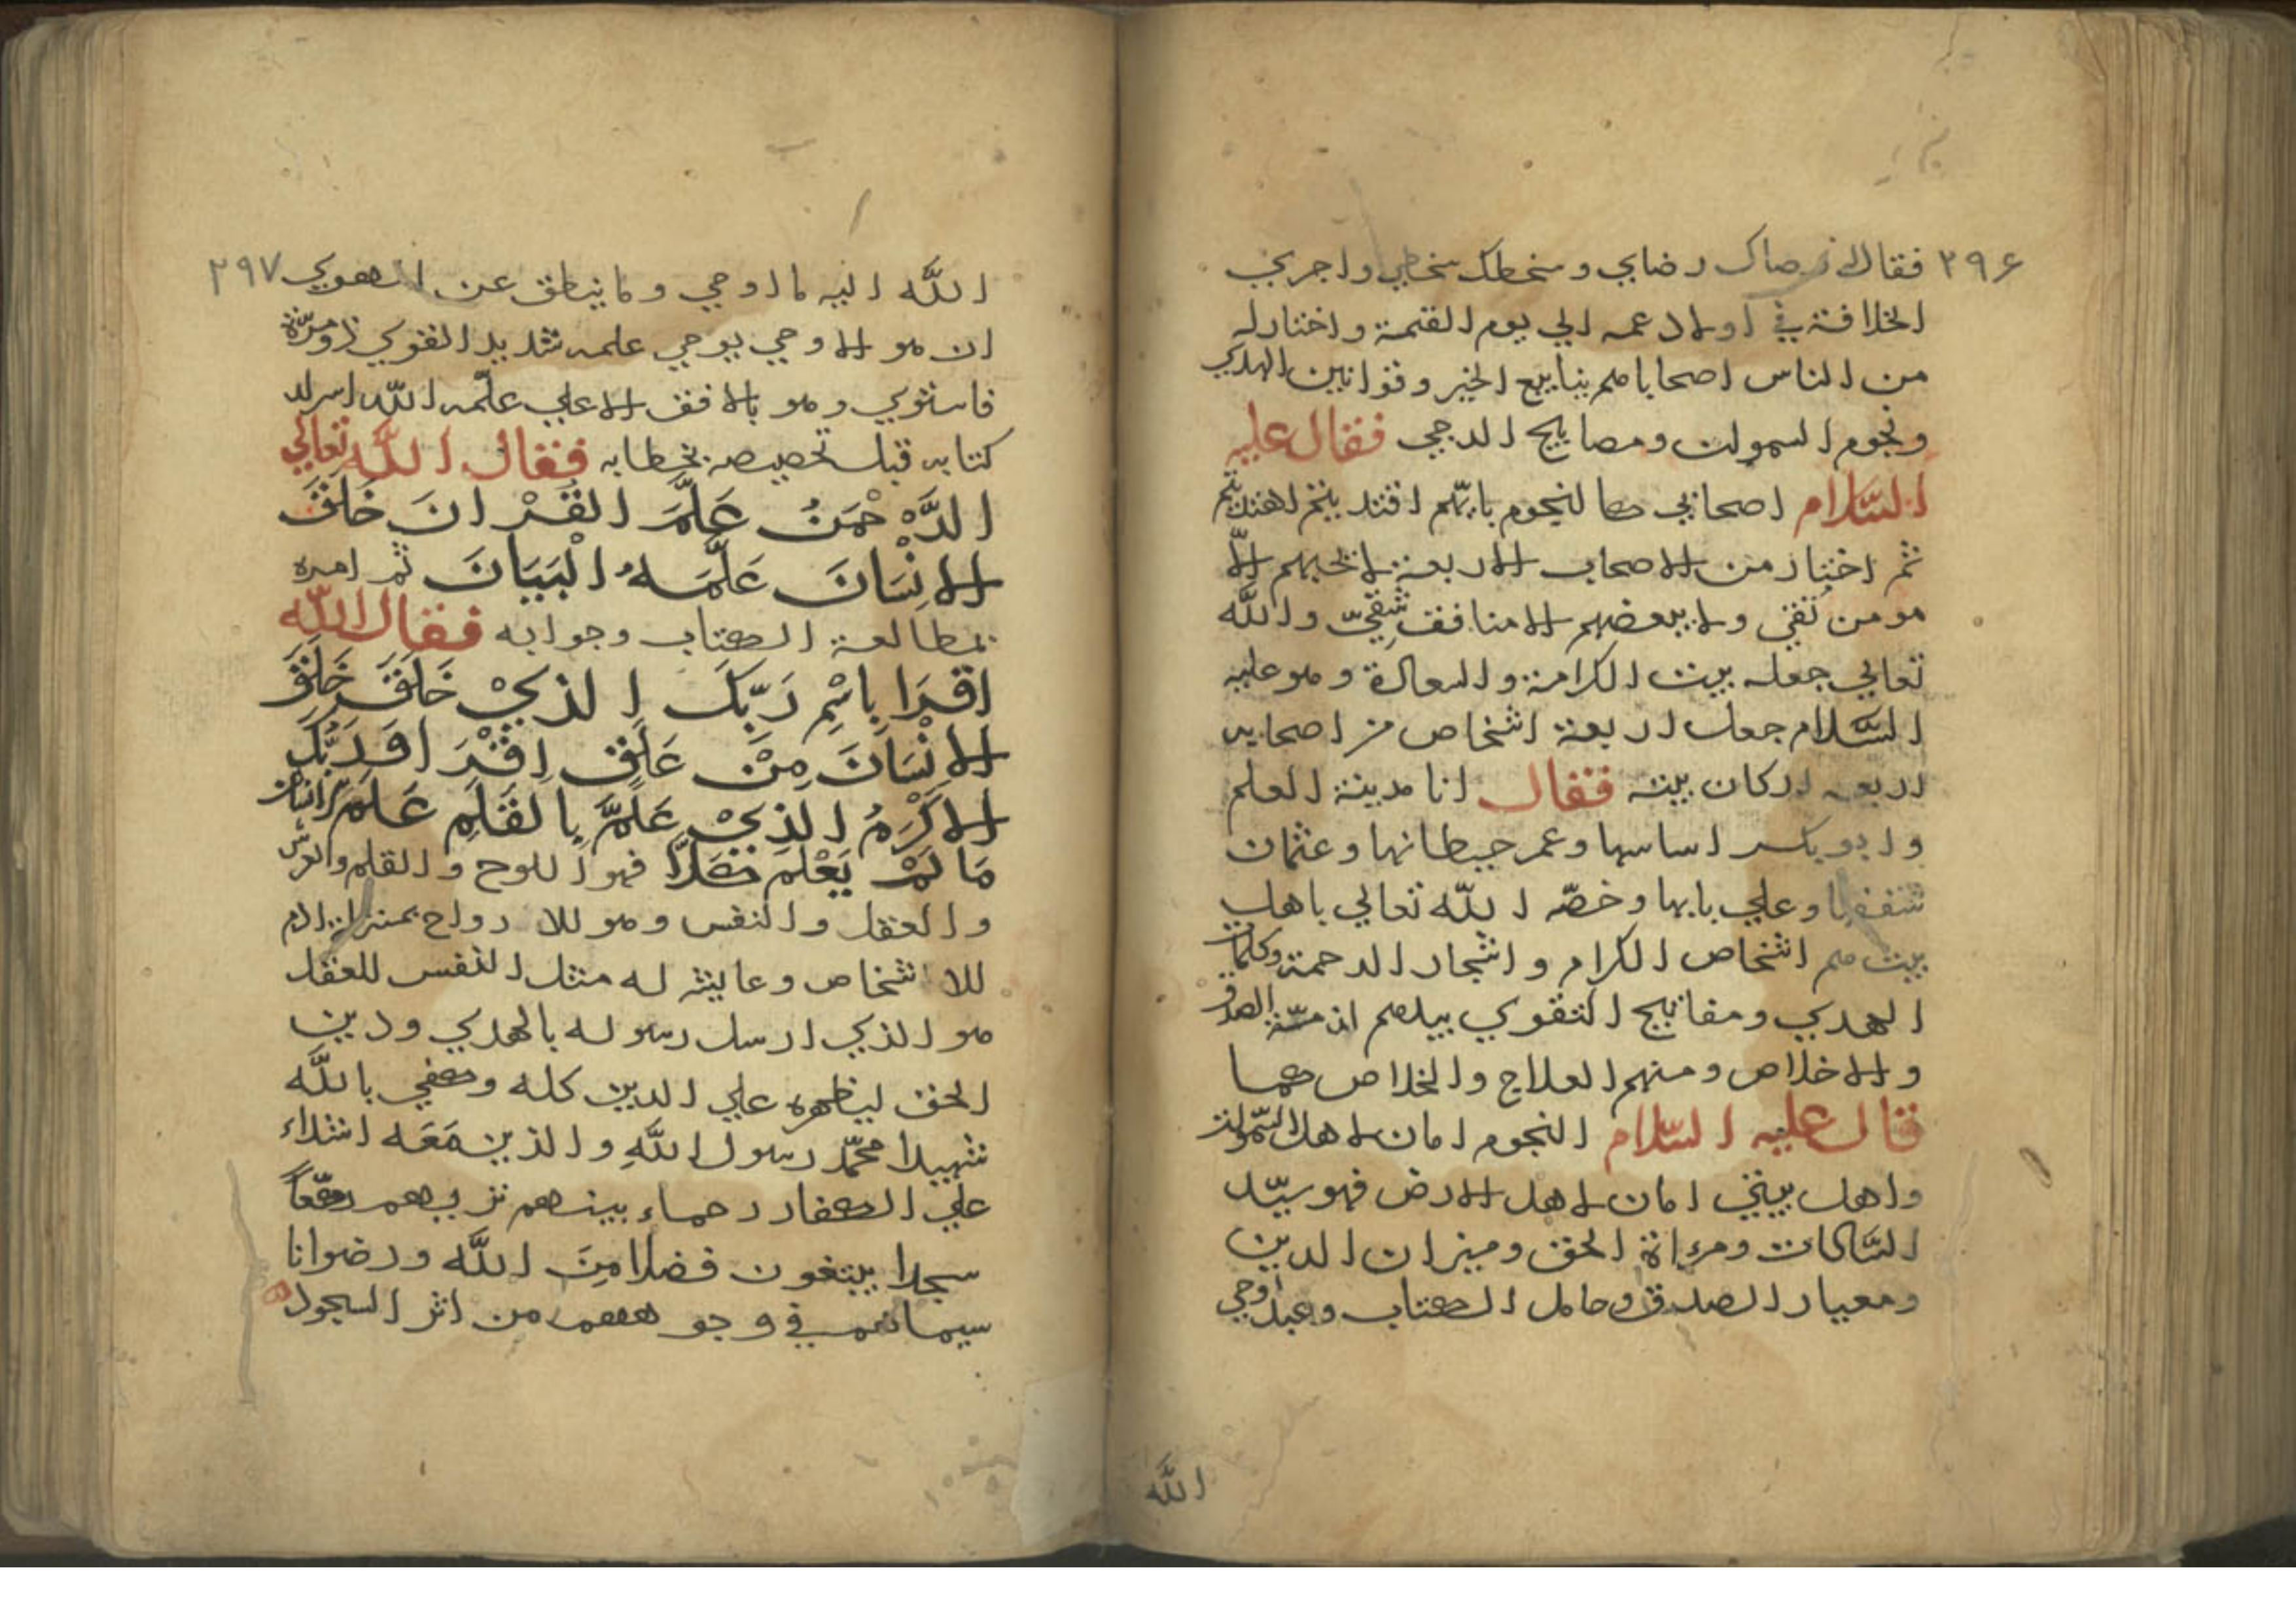 ٣٩۶ فقال رضاك رضاي وسخطك سخطي واجري
الخلافة في اولاد عمه الي يوم القيمة واختار له
من الناس اصحابا هم ينابيع الخير وقوانين الهدي
ونجوم السموات ومصابيح الدجي فقال عليه
السلام اصحابي كالنجوم بايّهم اقتديتم اهتديتم
ثم اختار من الاصحاب الاربعة لا تحبهم الّا
مومن تقي ولا يبغضهم الا منافق شقيّ واللّه
تعالي جعله بيت الكرامة والسعادة وهو عليه
السّلام جعل اربعة اشخاص من اصحابه
اربعه اركان بيته فقال انا مدينة العلم
وابوبكر اساسها وعمر حيطانها وعثمان
سقفها وعلي بابها وخصّه اللّه تعالي باهل
بيت هم اشخاص الكرام واشجار الرحمة وكلمات
الهدي ومفاتيح التقوي بيدهم ازمّة الصدق
والاخلاص ومنهم العلاج والخلاص كما
قال عليه السّلام النجوم امان لاهل السّموات
واهل بيتي امان لاهل الارض فهو سيّد
السّادات ومرءاة الحق وميزان الدين
ومعيار الصدق وحامل الكتاب وعبد اوحي
اللّه
اللّه اليه ما اوحي وما ينطق عن الهوي ٣٩٧
ان هو الا وحي يوحي علمه شديد القوي ذو مرّة
فاستوي وهو بالافق الاعلي علّمه اللّه اسرار
كتابه قبل تخصيصه بخطابه فقال اللّه تعالي
الرَّحْمَنُ عَلَّمَ القُرْانَ خَلَقَ
الاِنْسَانَ عَلَّمَهُ الْبَيَانَ ثم امره
بمطالعة الكتاب وجوابه فقال اللّه
اقْرَا بِاسْمِ رَبِّكَ الذيْ خَلَقَ خَلَقَ
الاِنْسَانَ مِنْ عَلَقٍ اِقْرَا وَرَبُّكَ
الاَكْرَمُ الذِيْ عَلَّمَ بِالقَلَمِ عَلَّمَ الانسان
مَا لَمْ يَعْلَمْ كَلَّا فهو اللوح والقلم والعرش
والعقل والنفس وهو للارواح بمنزلة ادم
للاشخاص وعايشة له مثل النفس للعقل
هو الذي ارسل رسوله بالهدي ودين
الحق ليظهره علي الدين كله وكفي باللّه
شهيدا محمّد رسول اللّهِ والذين مَعَه اشداء
علي الكفار رحماء بينهم تريهم ركّعاً
سجدا يبتغون فضلا مِنَ اللّه ورضوانا
سيماهم في وجوههم من اثر السجود